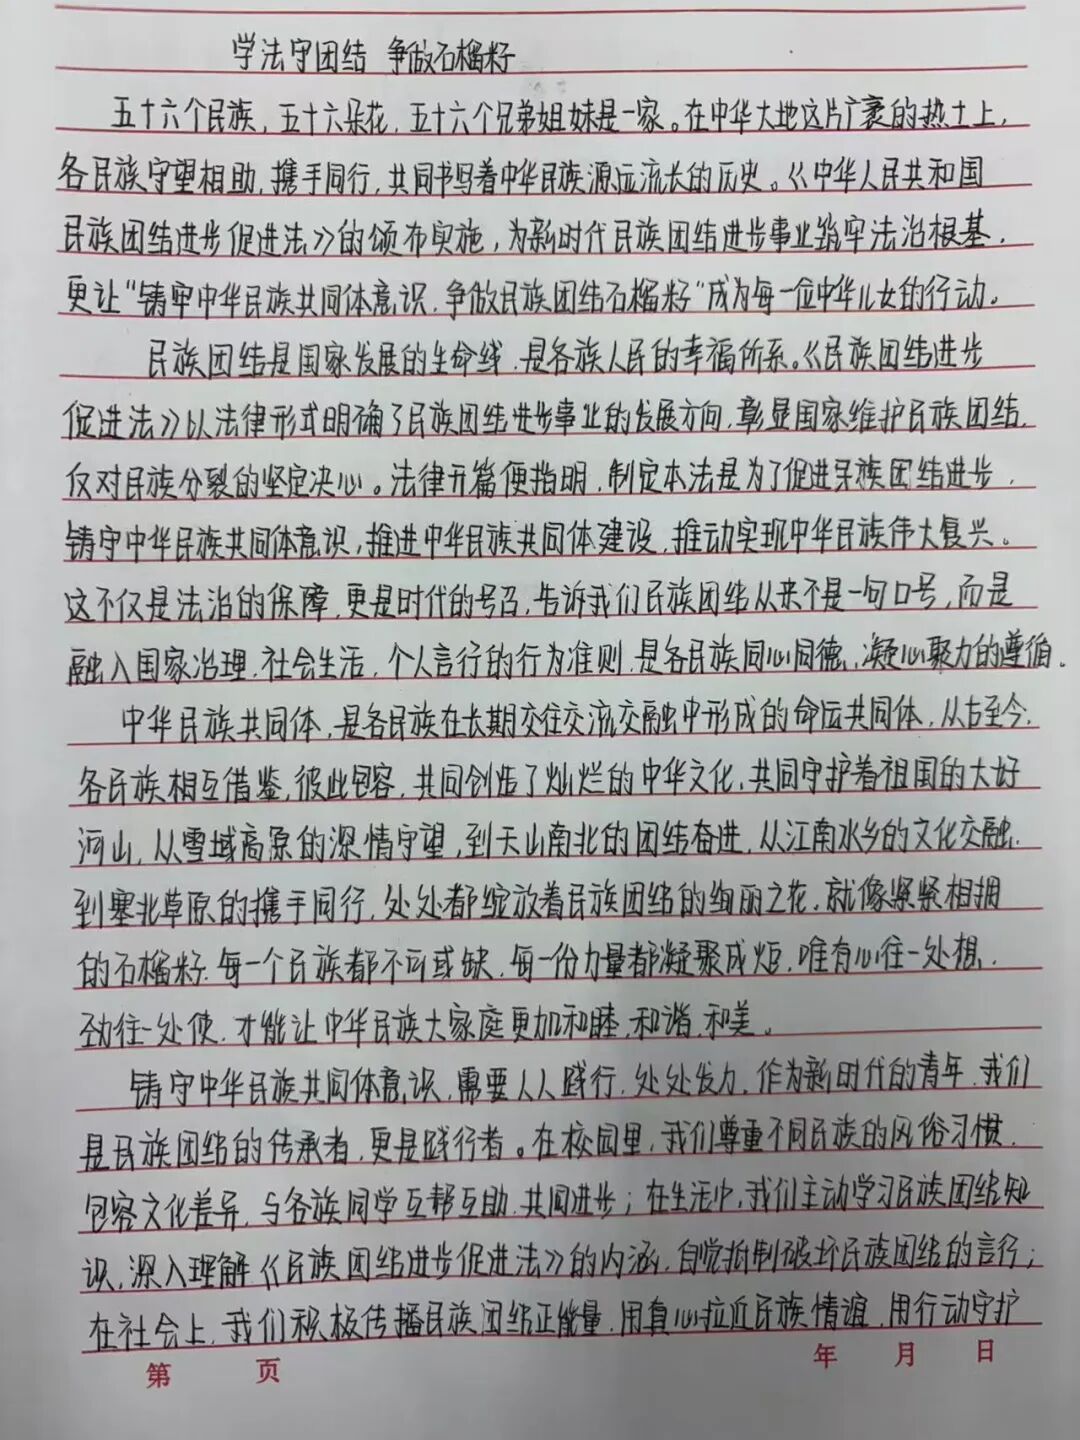 学法守团结 争做石榴籽
五十六个民族，五十六朵花，五十六个兄弟姐妹是一家。在中华大地这片广袤的热土上，
各民族守望相助，携手同行，共同书写着中华民族源远流长的历史。《中华人民共和国
民族团结进步促进法》的颁布实施，为新时代民族团结进步事业筑牢法治根基，
更让“铸牢中华民族共同体意识，争做民族团结石榴籽”成为每一位中华儿女的行动。
民族团结是国家发展的生命线，是各族人民的幸福所系。《民族团结进步
促进法》以法律形式明确了民族团结进步事业的发展方向，彰显国家维护民族团结，
反对民族分裂的坚定决心。法律开篇便指明，制定本法是为了促进民族团结进步，
铸守中华民族共同体意识，推进中华民族共同体建设，推动实现中华民族伟大复兴。
这不仅是法治的保障，更是时代的号召，告诉我们民族团结从来不是一句口号，而是
融入国家治理，社会生活，个人言行的行为准则，是各民族同心同德，凝心聚力的遵循。
中华民族共同体，是各民族在长期交往交流交融中形成的命运共同体，从古至今，
各民族相互借鉴，彼此包容，共同创造了灿烂的中华文化，共同守护着祖国的大好
河山，从雪域高原的深情守望，到天山南北的团结奋进，从江南水乡的文化交融，
到塞北草原的携手同行，处处都绽放着民族团结的绚丽之花，就像紧紧相拥
的石榴籽，每一个民族都不可或缺，每一份力量都凝聚成炬，唯有心往一处想，
劲往一处使，才能让中华民族大家庭更加和睦，和谐，和美。
铸守中华民族共同体意识，需要人人践行，处处发力，作为新时代的青年，我们
是民族团结的传承者，更是践行者。在校园里，我们尊重不同民族的风俗习惯，
包容文化差异，与各族同学互帮互助，共同进步；在生活中，我们主动学习民族团结知
识，深入理解《民族团结进步促进法》的内涵，自觉抵制破坏民族团结的言行；
在社会上，我们积极传播民族团结正能量，用真心拉近民族情谊，用行动守护
第 页 年 月 日